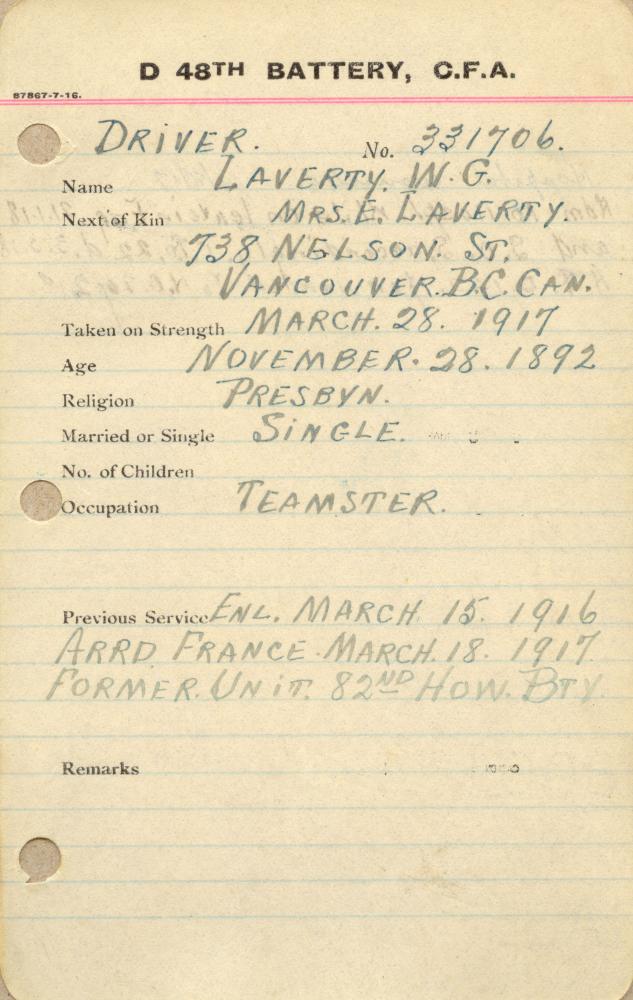 D 48TH BATTERY, C.F.A.
87867-7-16.
DRIVER. No. 331706.
Name LAVERTY. W.G.
Next of Kin MRS. E. LAVERTY.
738 NELSON. ST.
VANCOUVER. B.C. CAN.
Taken on Strength MARCH. 28. 1917
Age NOVEMBER. 28. 1892
Religion PRESBYN.
Married or Single SINGLE.
No. of Children
Occupation TEAMSTER.
Previous Service ENL. MARCH 15. 1916
ARRD. FRANCE. MARCH. 18. 1917.
FORMER. UNIT. 82ND HOW. BTY.
Remarks